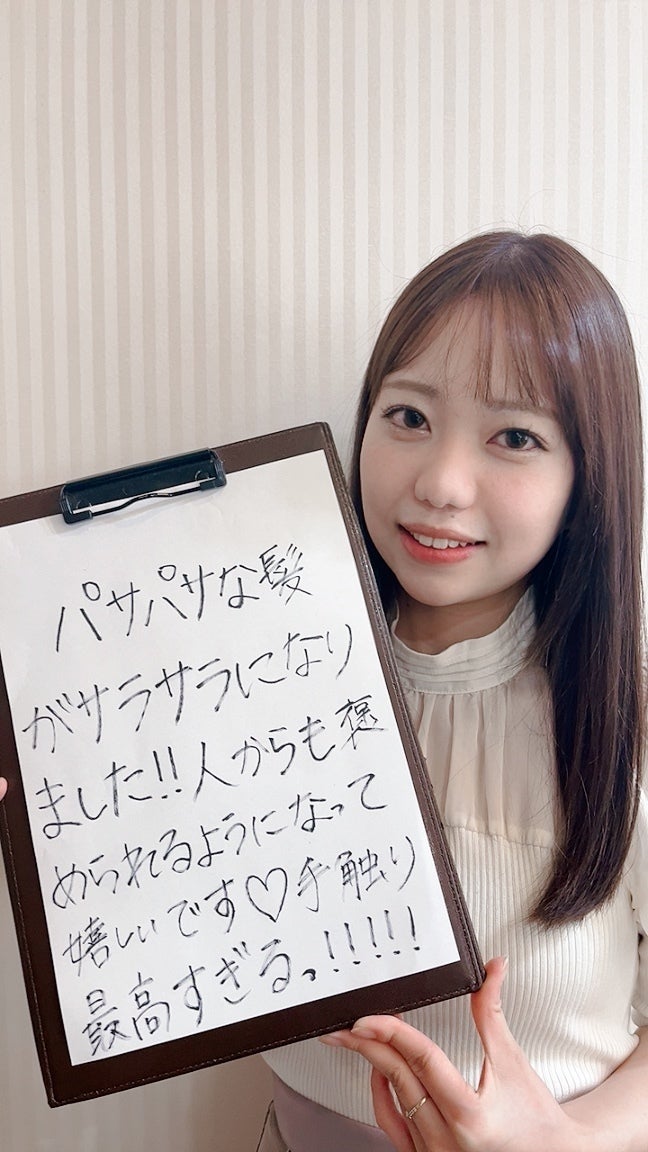 パサパサな髪
がサラサラになり
ました!!人からも褒
められるようになって
嬉しいです♡手触り
最高すぎるっ!!!!!